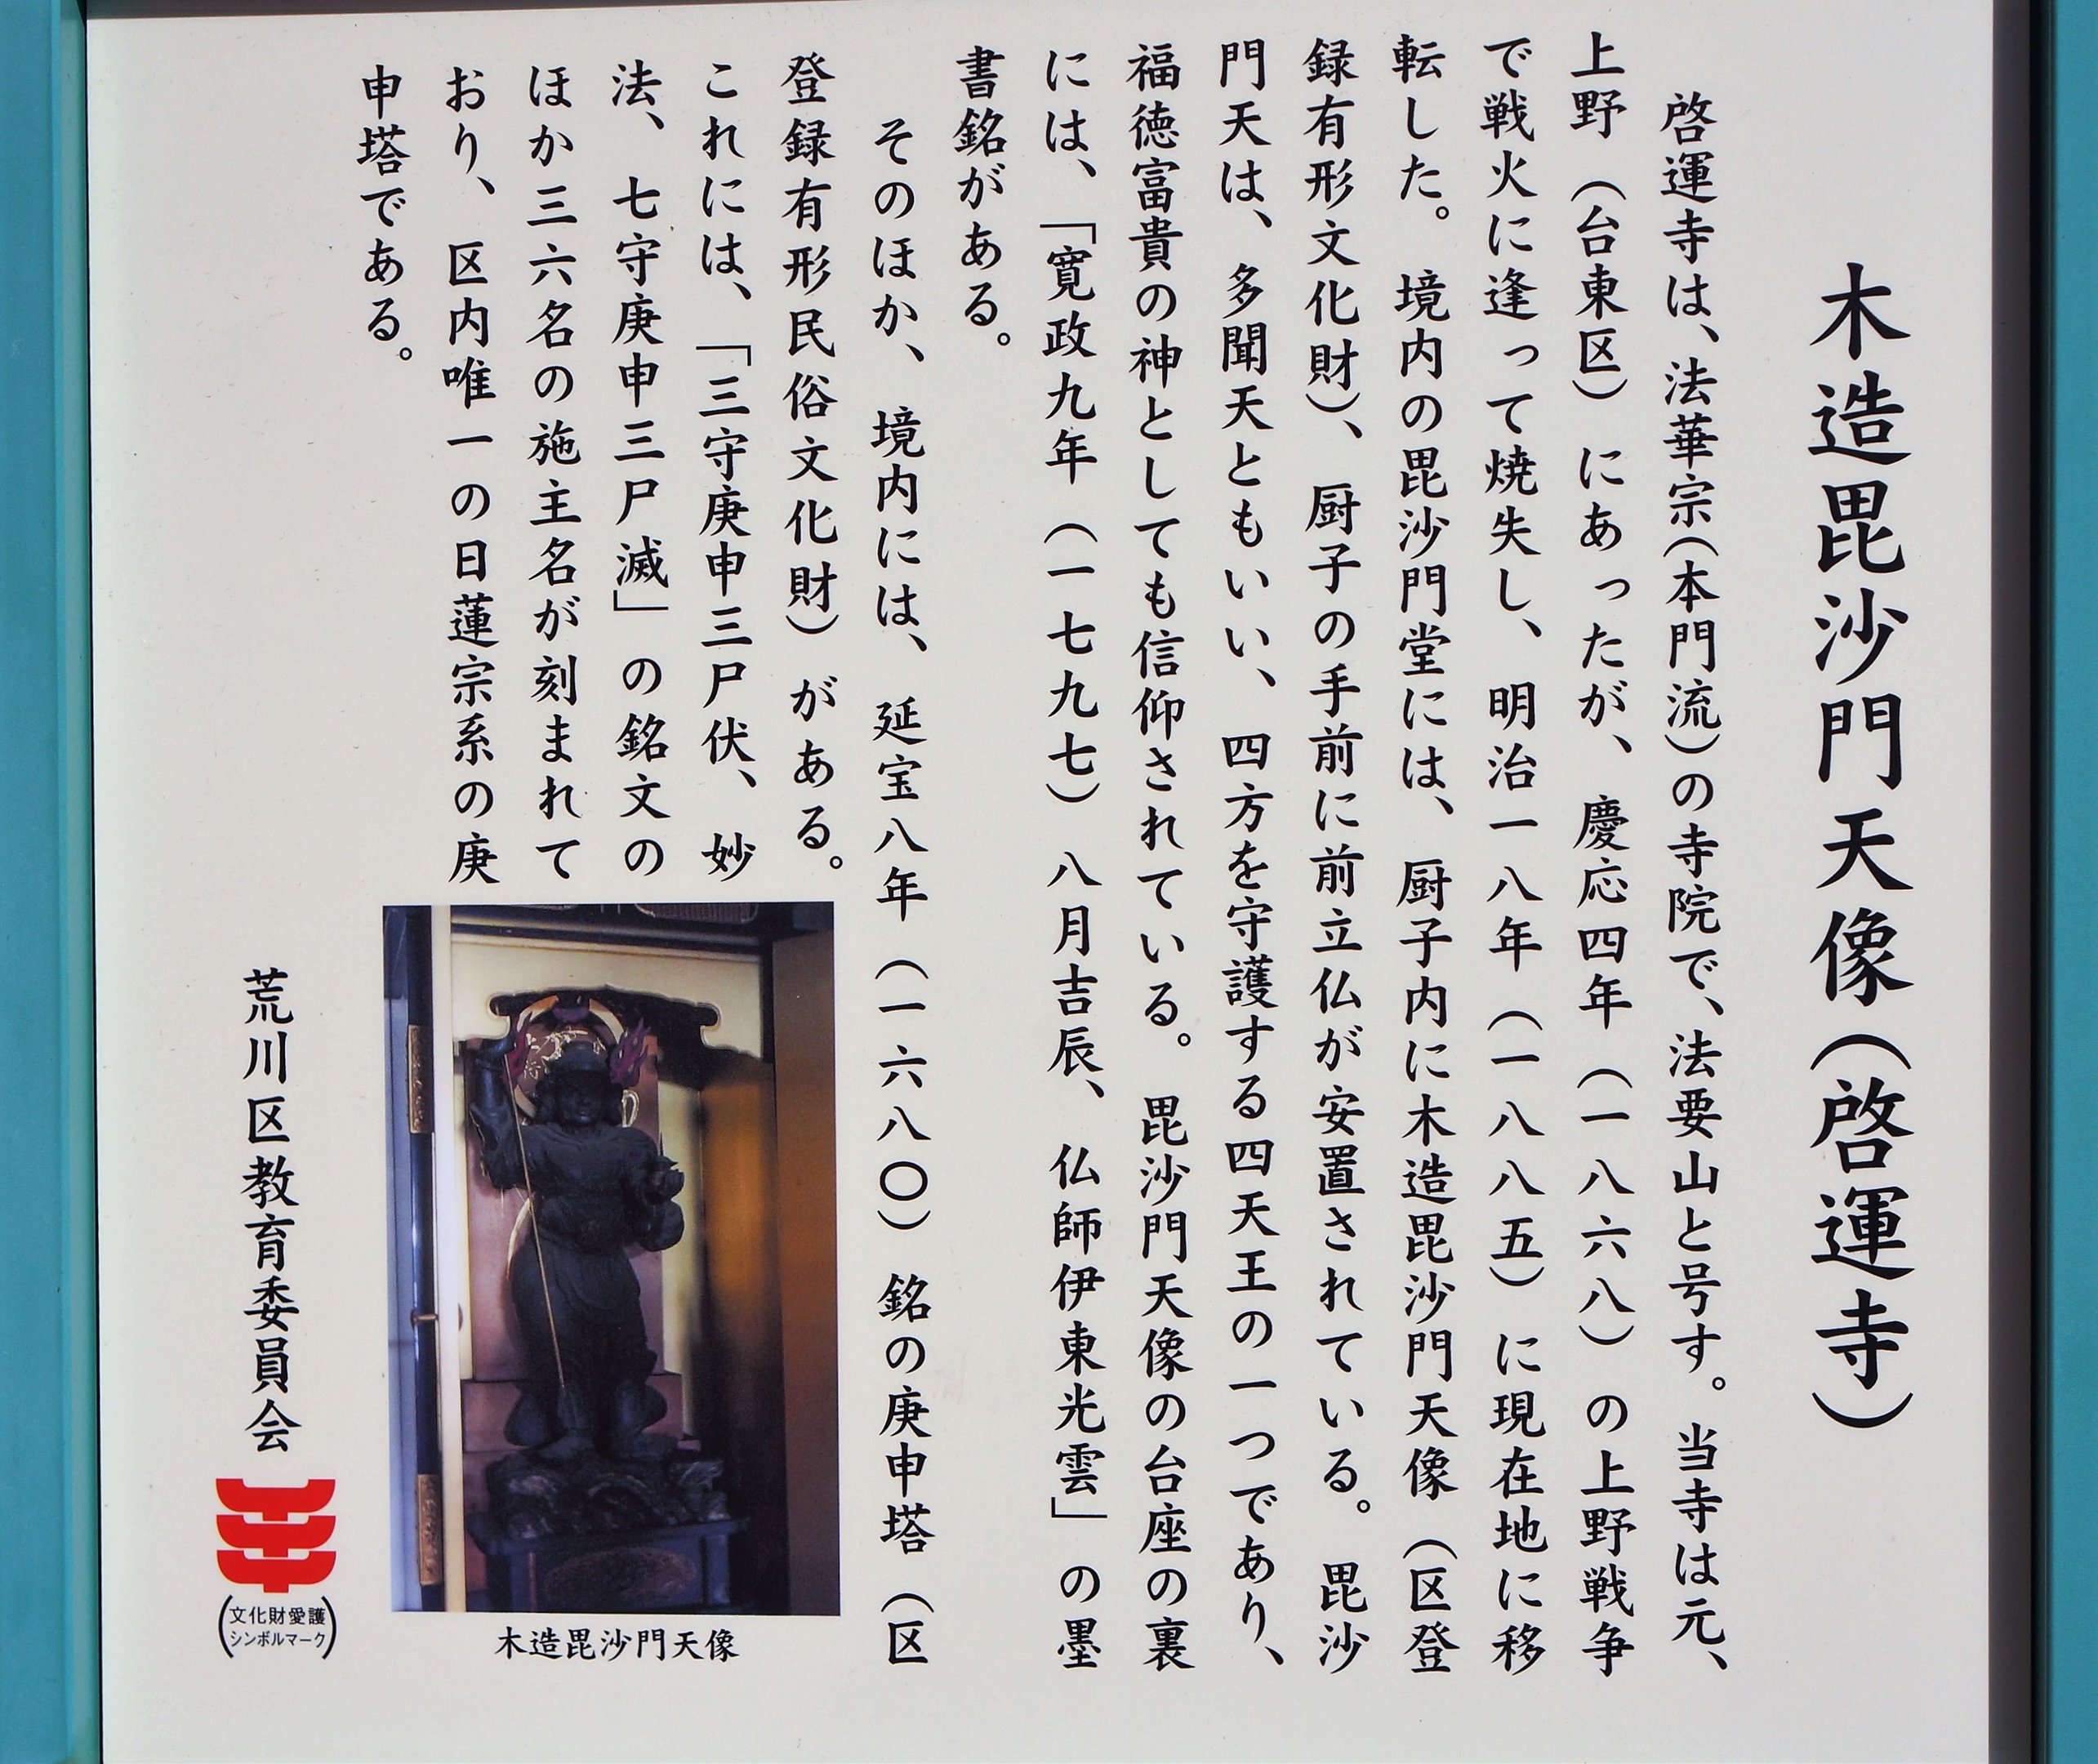 木造毘沙門天像（啓運寺）
啓運寺は、法華宗（本門流）の寺院で、法要山と号す。当寺は元、
上野（台東区）にあったが、慶応四年（一八六八）の上野戦争
で戦火に逢って焼失し、明治一八年（一八八五）に現在地に移
転した。境内の毘沙門堂には、厨子内に木造毘沙門天像（区登
録有形文化財）、厨子の手前に前立仏が安置されている。毘沙
門天は、多聞天ともいい、四方を守護する四天王の一つであり、
福徳富貴の神としても信仰されている。毘沙門天像の台座の裏
には、「寛政九年（一七九七）八月吉辰、仏師伊東光雲」の墨
書銘がある。
そのほか、境内には、延宝八年（一六八〇）銘の庚申塔（区
登録有形民俗文化財）がある。
これには、「三守庚申三尸伏、妙
法、七守庚申三尸滅」の銘文の
ほか三六名の施主名が刻まれて
おり、区内唯一の日蓮宗系の庚
申塔である。
木造毘沙門天像
荒川区教育委員会
（文化財愛護
シンボルマーク）